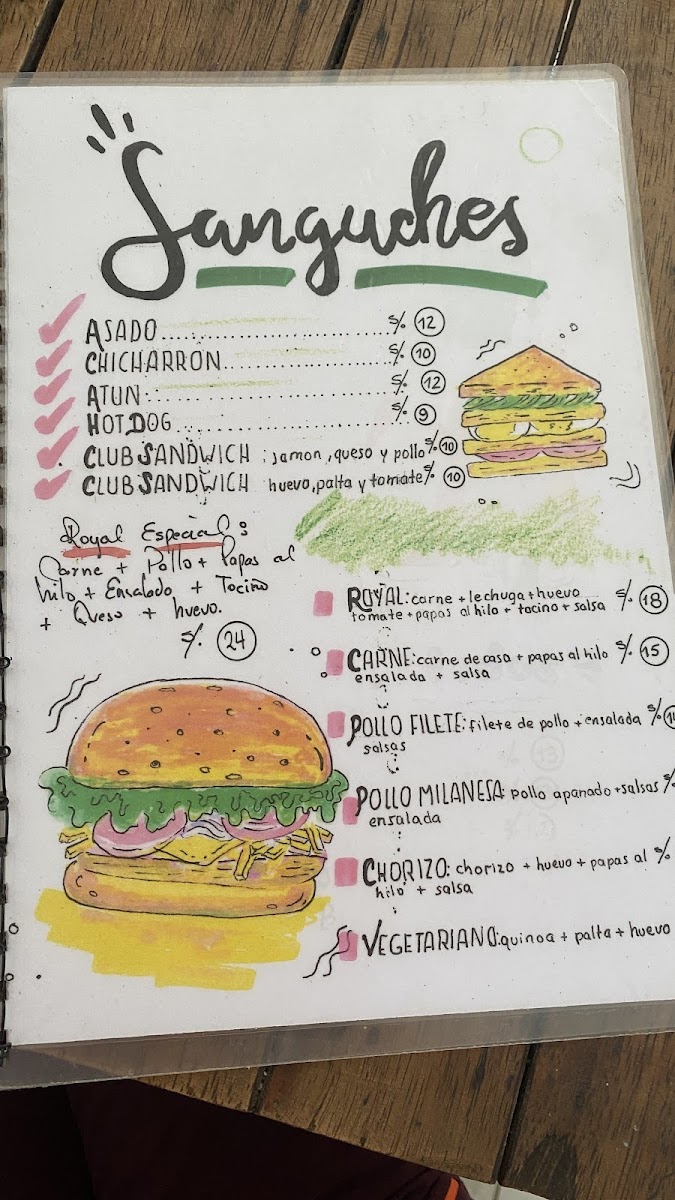 Sanguches
ASADO.............................. S/. 12
CHICHARRON...................... S/. 10
ATUN................................ S/. 12
HOT DOG............................ S/. 9
CLUB SANDWICH : jamon, queso y pollo S/. 10
CLUB SANDWICH huevo, palta y tomate S/. 10
Royal Especial :
Carne + Pollo + Papas al
hilo + Ensalada + Tocino
+ Queso + huevo.
S/. 24
ROYAL: carne + lechuga + huevo S/. 18
tomate + papas al hilo + tocino + salsa
CARNE: carne de casa + papas al hilo S/. 15
ensalada + salsa
POLLO FILETE: filete de pollo + ensalada S/.
salsas
POLLO MILANESA: pollo apanado + salsas S/.
ensalada
CHORIZO: chorizo + huevo + papas al S/.
hilo + salsa
VEGETARIANO: quinoa + palta + huevo